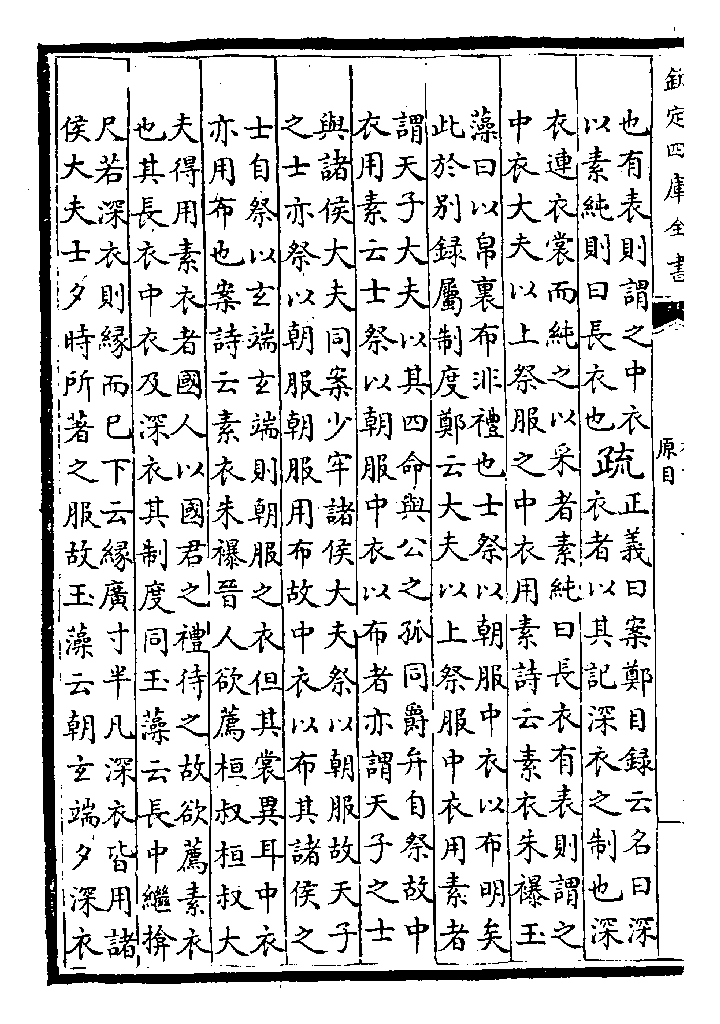 欽定四庫全書
原目
也有表則謂之中衣
以素純則曰長衣也
疏
正義曰案鄭目録云名曰深
衣者以其記深衣之制也深
衣連衣裳而純之以采者素純曰長衣有表則謂之
中衣大夫以上祭服之中衣用素詩云素衣朱襮玉
藻曰以帛裏布非禮也士祭以朝服中衣以布明矣
此於別録屬制度鄭云大夫以上祭服中衣用素者
謂天子大夫以其四命與公之孤同爵弁自祭故中
衣用素云士祭以朝服中衣以布者亦謂天子之士
與諸侯大夫同案少牢諸侯大夫祭以朝服故天子
之士亦祭以朝服朝服用布故中衣以布其諸侯之
士自祭以玄端玄端則朝服之衣但其裳異耳中衣
亦用布也案詩云素衣朱襮晉人欲薦桓叔桓叔大
夫得用素衣者國人以國君之禮待之故欲薦素衣
也其長衣中衣及深衣其制度同玉藻云長中繼揜
尺若深衣則縁而已下云縁廣寸半凡深衣皆用諸
侯大夫士夕時所著之服故玉藻云朝玄端夕深衣